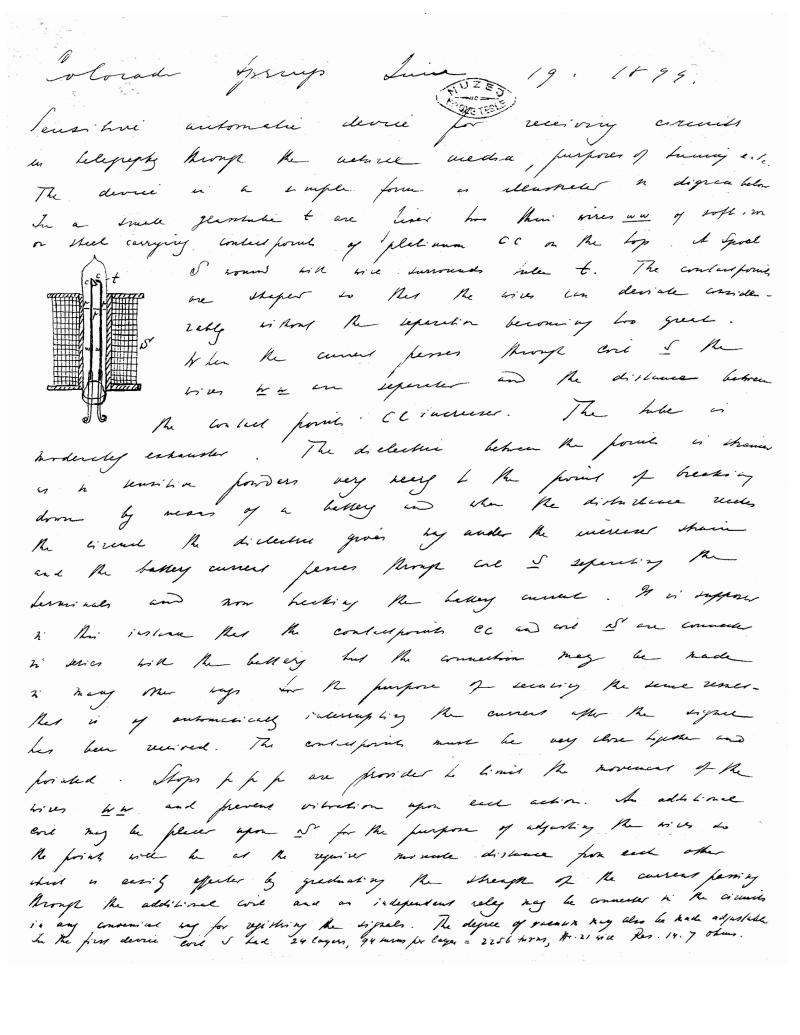 Colorado Springs June 19. 1899.
MUZEJ
NIKOLE TESLE
Sensitive automatic device for receiving circuits
in telegraphy through the natural media, purposes of tuning etc.
The device in a simple form is illustrated in digram below
In a small glasstube t are fixed two thin wires ww of soft iron
or steel carrying contactpoints of platinum CC on the top. A spool
S wound with wire surrounds tube t. The contactpoints
are shaped so that the wires can deviate conside-
rably without the separation becoming too great.
When the current passes through coil S the
wires w w are separated and the distance between
the contact points CC increased. The tube is
moderately exhausted. The dielectric between the points is strained
as in sensitive powders very nearly to the point of breaking
down by means of a battery and when the disturbance reaches
the circuit the dielectric gives way under the increased strain
and the battery current passes through coil S separating the
terminals and now breaking the battery current. It is supposed
in this instance that the contactpoints CC and coil S are connected
in series with the battery but the connection may be made
in many other ways for the purpose of securing the same result-
that is of automatically interrupting the current after the signal
has been received. The contactpoints must be very close together and
pointed. Stops p p p are provided to limit the movement of the
wires w w and prevent vibration upon each action. An additional
coil may be placed upon S for the purpose of adjusting the wires so
the points will be at the required minute distance from each other
which is easily effected by graduating the strength of the current passing
through the additional coil and an independent relay may be connected in the circuits
in any convenient way for registering the signals. The degree of vacuum may also be made adjustable
In the first device coil S had 24 layers, 94 turns per layer = 2256 turns, No. 21 wire Res. 14.7 ohms.
c c t
p p
p
w w
S